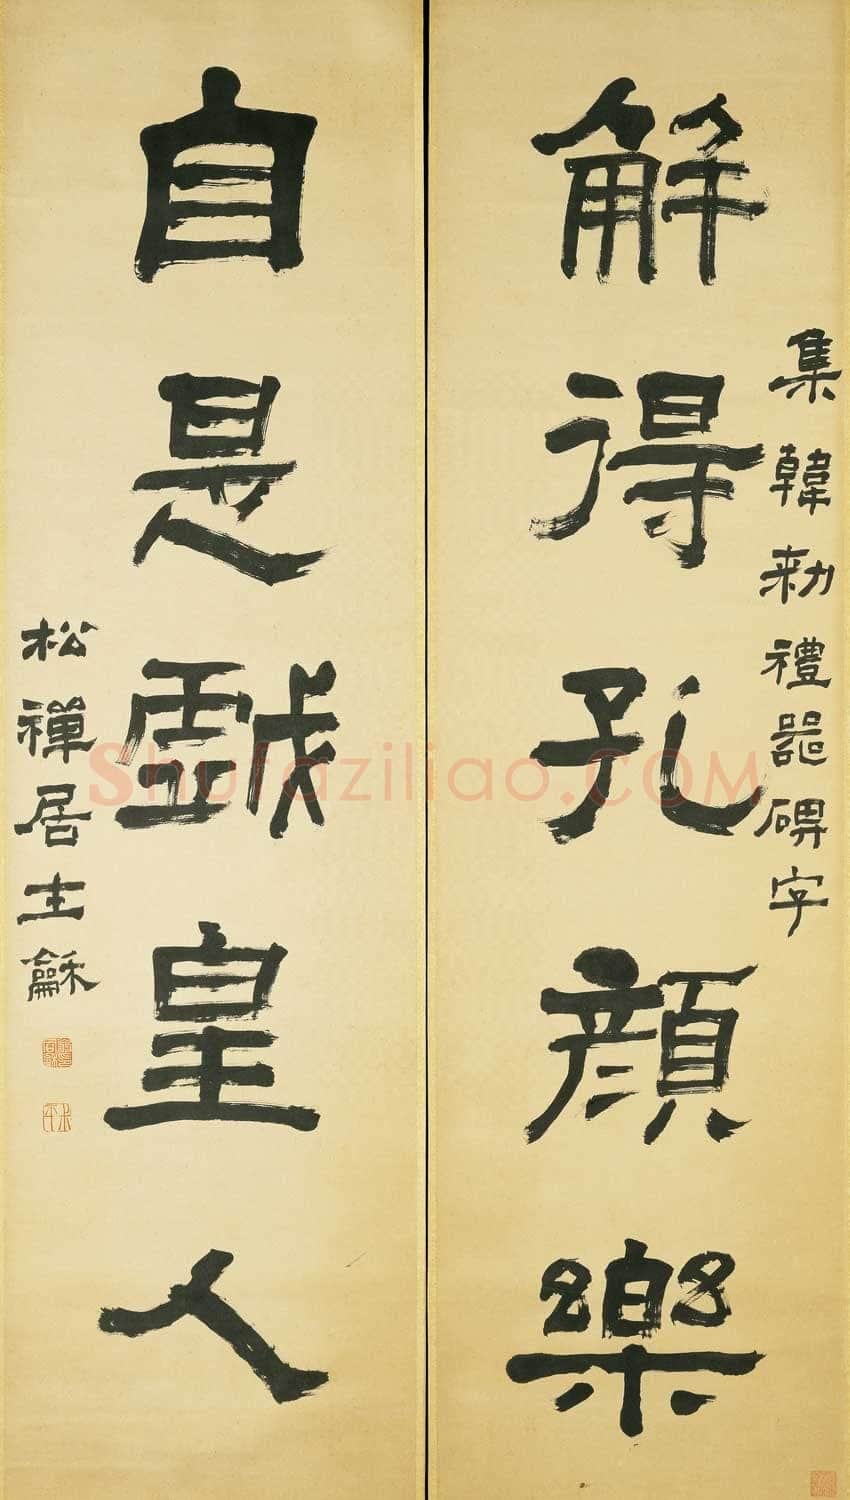 集韓勑禮器碑字
解得孔顏樂
自是戲皇人
松禪居士龢
Shufaziliao.COM